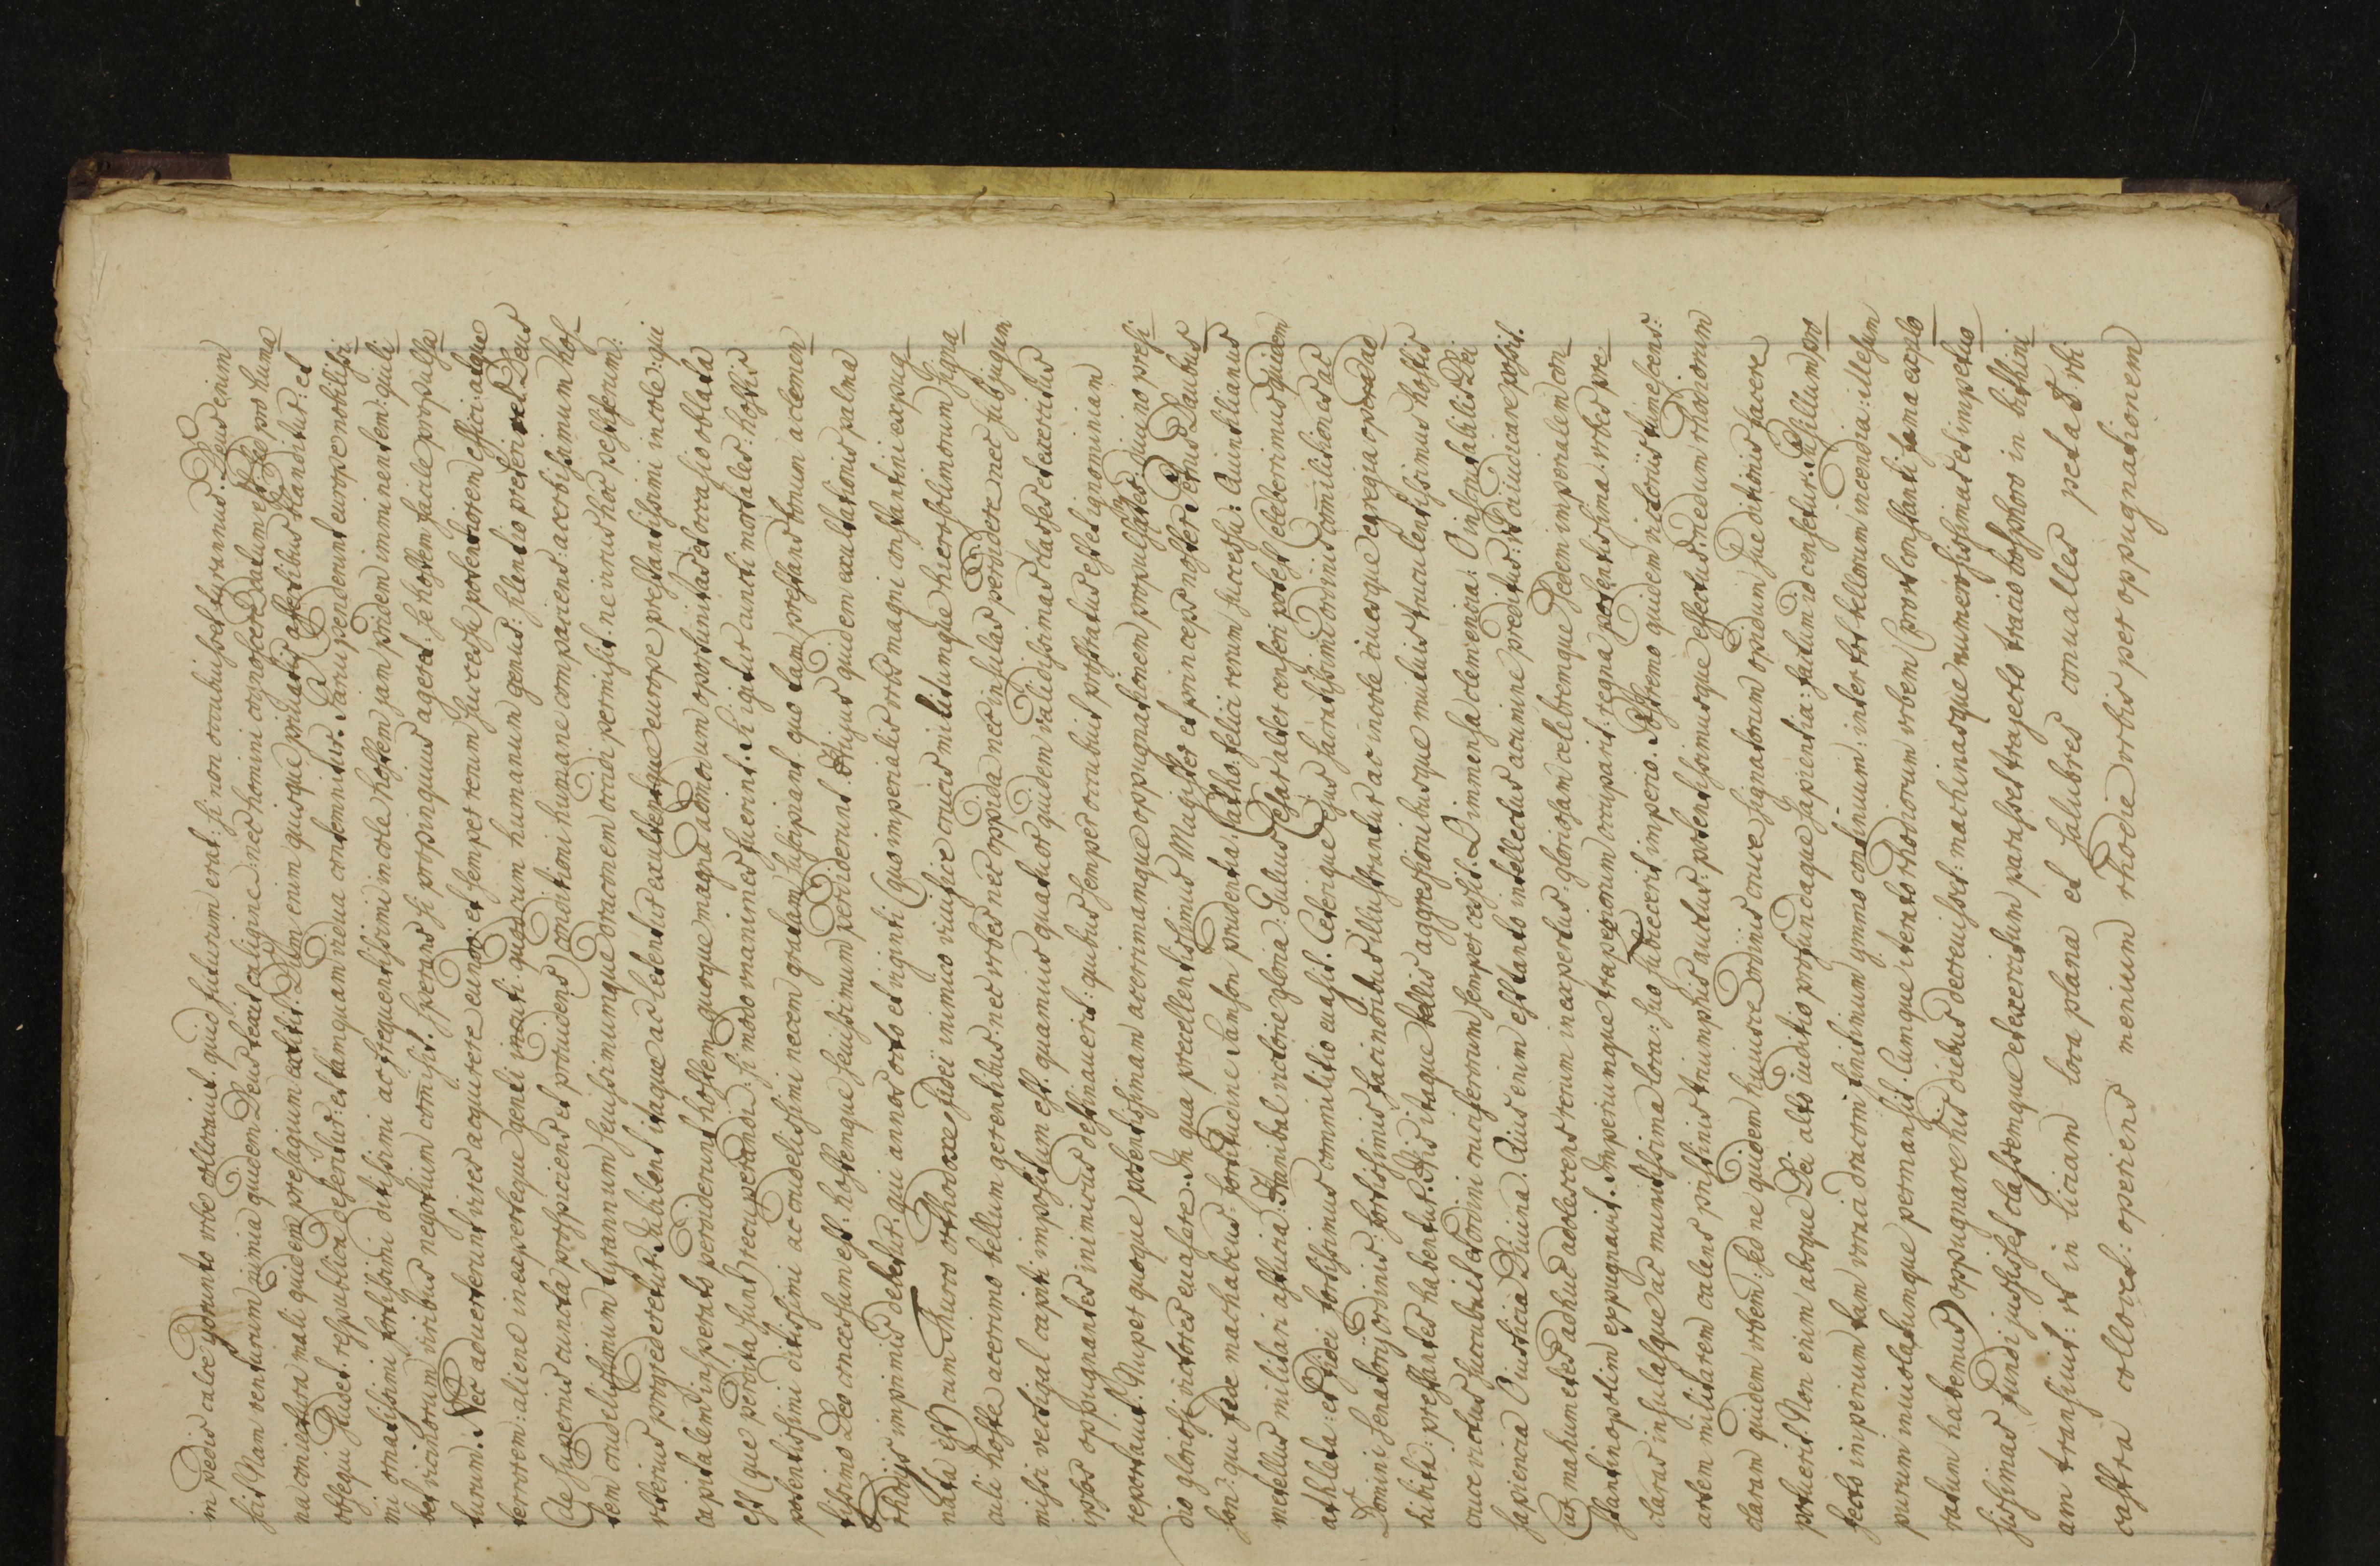 in pedis calce ydrunto urbe collocauit. quid futurum erat: si non occubuisset tyrannus. Deus enim
scit Nam venturum nimia quidem Deus texit caligine: nec homini cognoscere datum est. Sed pro huma
na coniectura mali quidem presagium extitit. Dum enim quisque priuatis affectibus blanditur: et
obsequi studet. respublica deseritur: et tamquam vidua contemnitur. Parui penderunt europe nobilissi
mi ornatissimi fortissimi ditissimi ac frequentissimi incole hostem jam pridem imminentem: qui li
bet vicinorum viribus negotium comisit. Sperans si propinquius ageret. se hostem facile propulsa
turum. Nec aduerterunt vires acquirere eundo: et semper rerum successu potentiorem effici: atque
terrorem: aliene inexperteque genti incuti. quod cum humanum genus: silentio preteri vel. Deus
(de supernis cuncta prospiciens et prouidens) conditioni humane compaciens: acerbissimum hos
tem crudelissimum tyrannum seuissimumque draconem occidi permisit. ne virus hoc pestiferum:
vlterius progrederetur. Jubilent itaque ac letentur exultentque europe prestantissimi incole: qui
capitalem insperato perdiderunt hostem quoque magna armorum oportunitas et occasio oblata
est (que perdita sunt) recuperandi: si modo vnanimes fuerint. Si igitur cuncti mortales: hostis
potentissimi ditissimi ac crudelissimi necem gratam suscipiant. quo tam prestans bonum a clemen
tissimo Deo concessum est: hostemque seuissimum perdiderunt. Hujus quidem exultationis palma
rhodijs imprimis debetur. qui annos octo et viginti (quo imperialis urbs magni constantini expug
nata est) cum Thurco orthodoxe fidei inimico viuifice crucis militumque hierosolimorum signa
culi hoste acerrimo bellum gerentibus: nec vrbes nec oppida nec insulas perdidere nec subjugum
missi vertigal capiti impositum est. quamuis quatuor quidem validissimas classes et exercitus
ipsos oppugnantes inimicus destinauerit: quibus semper occubuit prostratus est et ignominiam
reportauit. Nuper quoque potentissimam acerrimamque oppugnationem propulsantes: diuino presi
dio gloriosi victores euasere. In qua precellentissimus Magister et princeps noster Petrus Daubus
son: qui fide machabeus: fortitudine Samson prudentia Catho: felici rerum successu: Quintilianus
metellus militari astucia: Hanibal victorie gloria: Julius Cesar aldet censeri potest celeberrimus quidem
athleta: et fidei fortissimus commilitio euasit. Ceterique Ejus sacratissimi ordinis commilitiones ac
Domini senatorij ordinis: fortissimis facinoribus illustrantur ac incole ciuesque egregia opera dat
hibita: prestantes habentur. His itaque bellis aggressionibusque multis truculentissimus hostis
cruce victus succubuit et ordini cruciferorum semper cessit. O immensa clemencia: O inscrutabilis Dei
sapiencia O iusticia Diuina. Quis enim est tanto intellectus acumine preditus: ut diiudicare possit.
Cur mahumetes adhuc adolescens rerum inexpertus: gloriosam celebremque sedem imperialem con
stantinopolim expugnauit. Imperiumque trapezonorum occupauit: regna potentissima: urbes pre
claras insulasque ac munitissima loca: suo subiecerit imperio. Postremo quidem victoriis tumescens:
artem militarem calens pristinis triumphis auctus: potentissimusque effectus: nedum rhodiorum
claram quidem vrbem: sed ne quidem huiusce ordinis cruce signatorum opidum sue ditionis facere
potuerit. Non enim absque Dei alto iuditio profundaque sapientia: factum id censetur. Pusillum pro
fecto imperium tam voraci draconi finissimum ymmo continuum: inter tot bellorum incendia: illesum
purum inuiolatumque permansit. Cumque iterato rhodiorum vrbem (prout constanti fama explo
ratum habemus) oppugnare his diebus decreuisset: machinasque numerosissimas et impetuo
sissimas fundi jussisset classemque et exercitum parasset trajecto tracio bosphoro in bithini
am transiuit: ut in liciam loca plana et salubres conualles petat &. vbi
castra collocet: operiens menium rhodie vrbis per oppugnationem